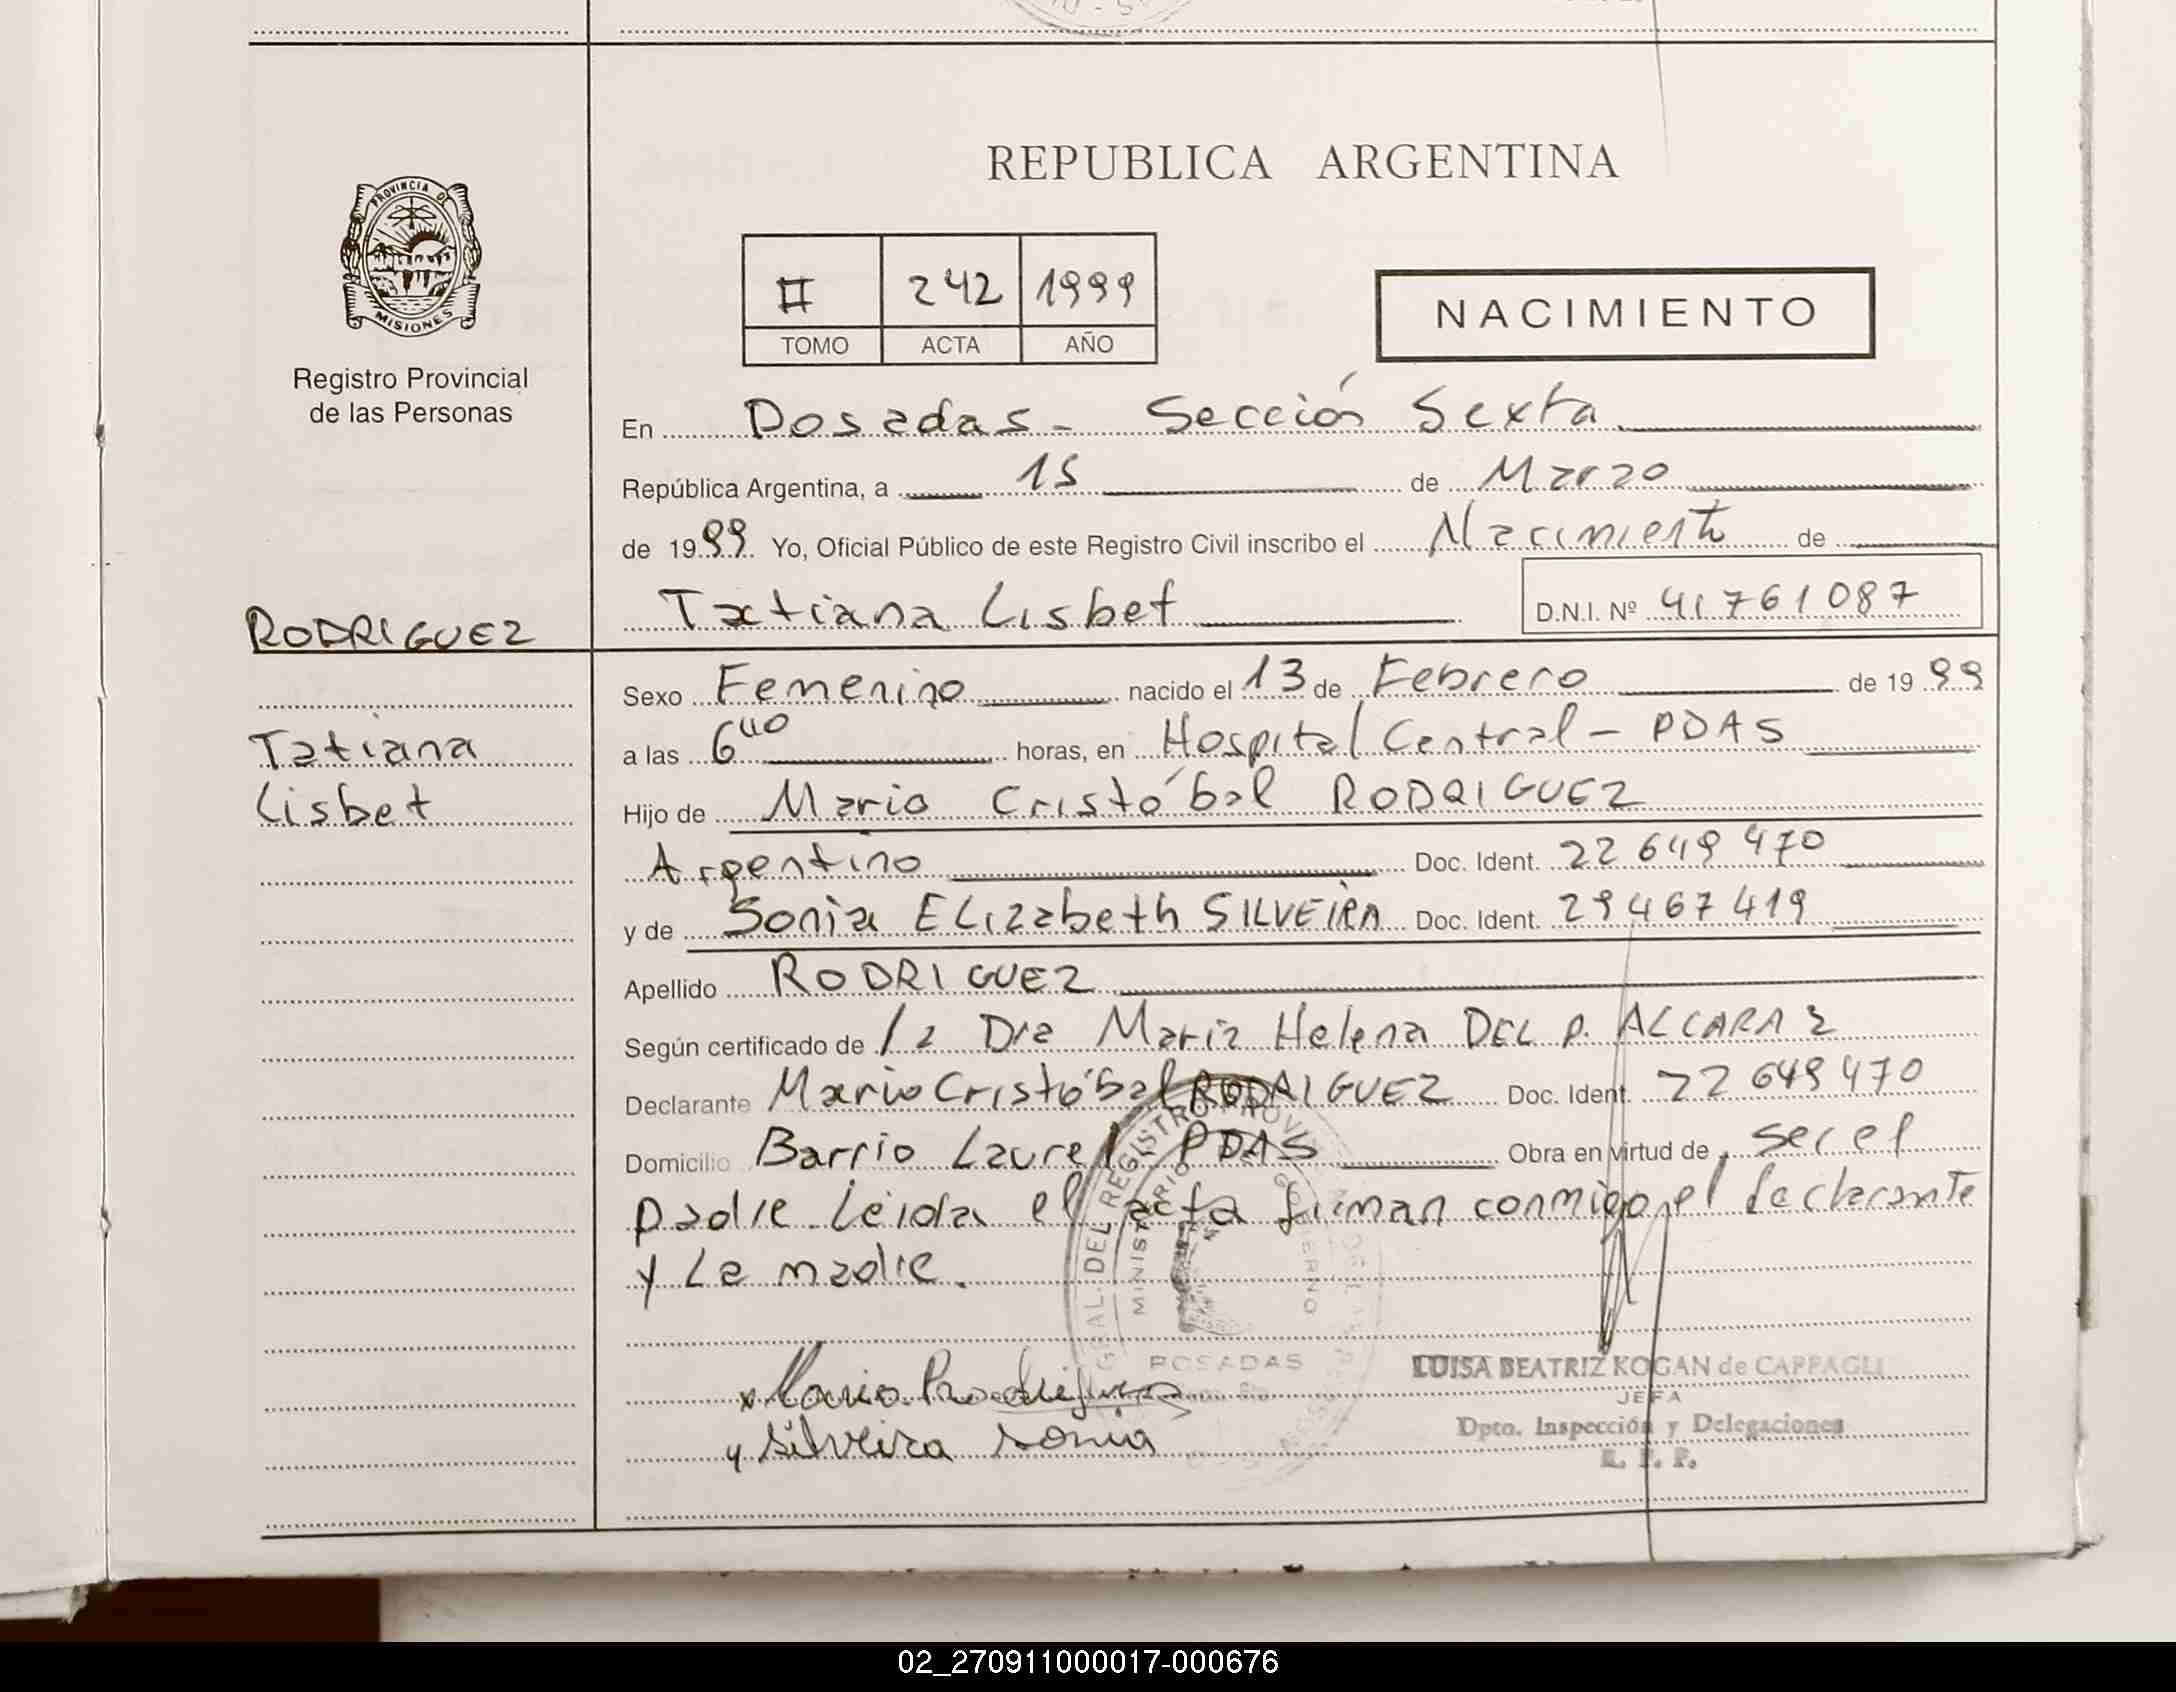 REPUBLICA ARGENTINA
PROVINCIA DE
MISIONES
Registro Provincial
de las Personas
II 242 1999
TOMO ACTA AÑO
NACIMIENTO
En Posadas - Sección Sexta
República Argentina, a 15 de Marzo
de 1999 Yo, Oficial Público de este Registro Civil inscribo el Nacimiento de
RODRIGUEZ
Tatiana Lisbet D.N.I. Nº 41761087
Sexo Femenino nacido el 13 de Febrero de 1999
Tatiana
Lisbet
a las 6 40 horas, en Hospital Central - PDAS
Hijo de Mario Cristóbal RODRIGUEZ
Argentino Doc. Ident. 22 649 470
y de Sonia ELizabeth SILVEIRA Doc. Ident. 29 467 419
Apellido RODRIGUEZ
Según certificado de la Dra Maria Helena DEL P. ALCARAZ
Declarante Mario Cristóbal RODRIGUEZ Doc. Ident. 22 649 470
Domicilio Barrio Laurel - PDAS Obra en virtud de ser el
padre Leida el acta firman conmigo el declarante
y La madre.
POSADAS
x Mario Rodriguez
Silveira Sonia
LUISA BEATRIZ KOGAN de CAPPAGLI
JEFA
Dpto. Inspección y Delegaciones
R. P. P.
02_270911000017-000676